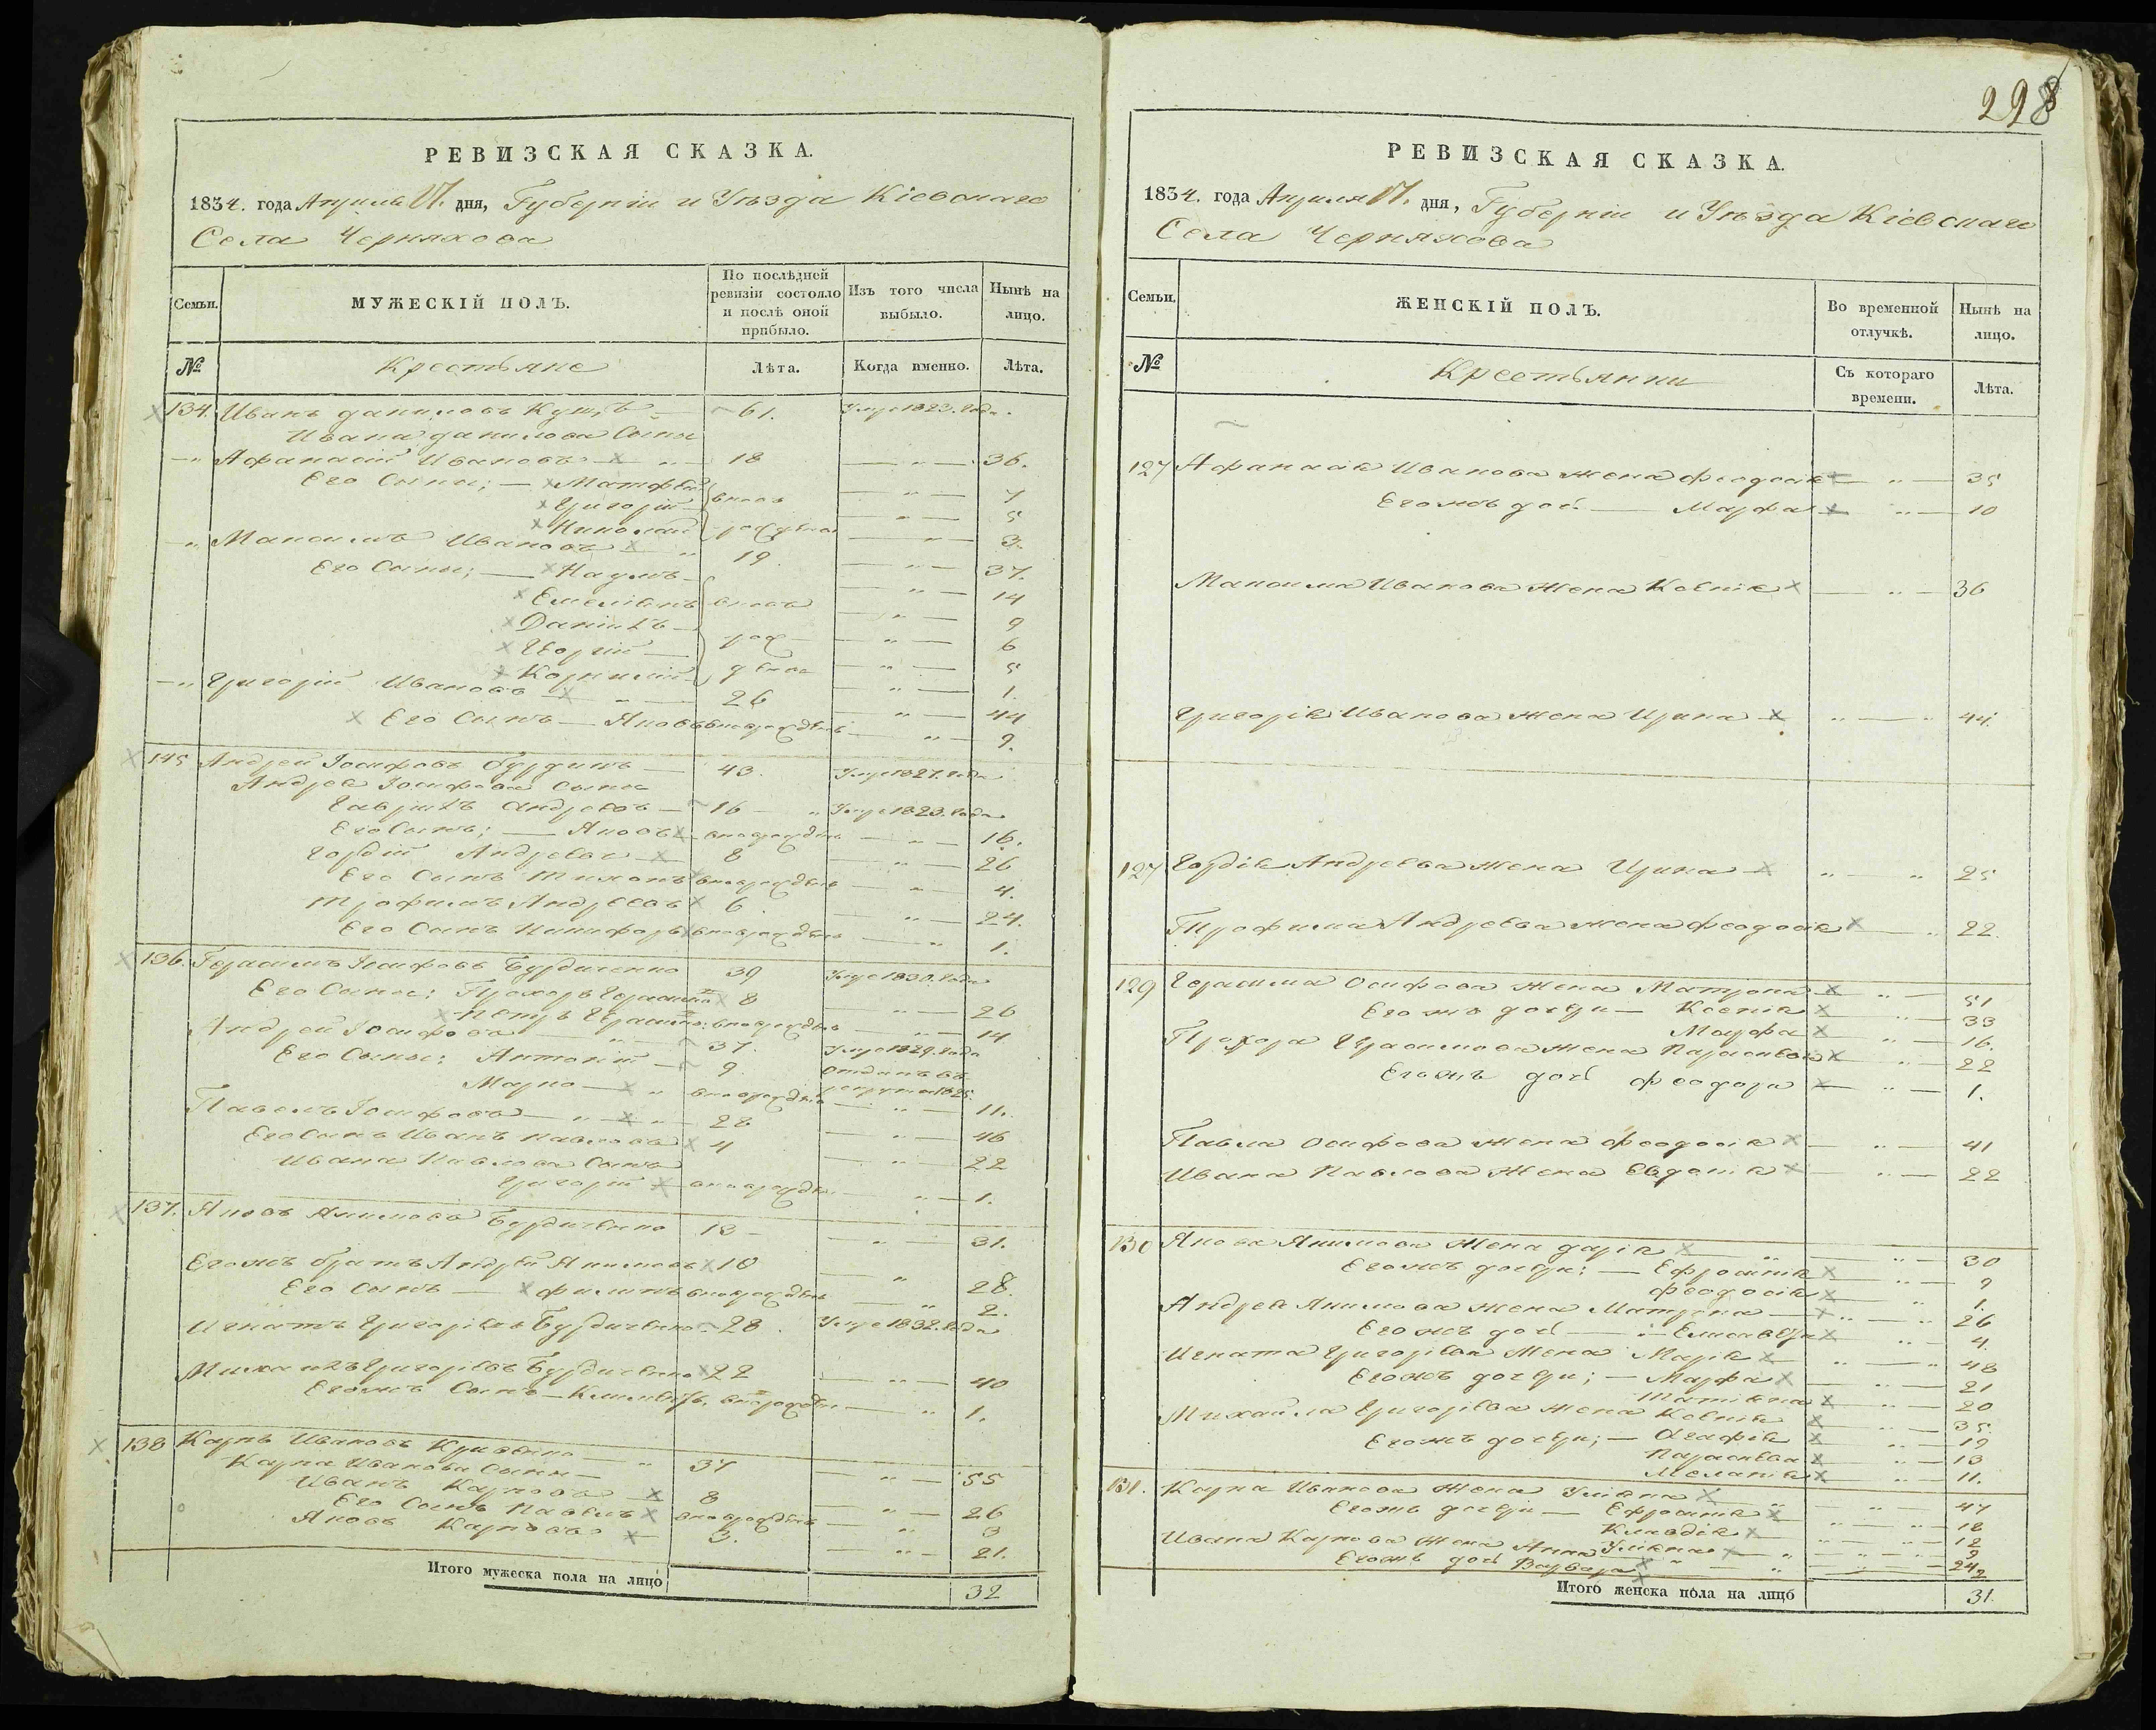 РЕВИЗСКАЯ СКАЗКА.
1834. года Апреля 17. дня, Губерніи и Уѣзда Кіевскаго
Села Черняхова
Семьи.
МУЖЕСКІЙ ПОЛЪ.
По послѣдней ревизіи состояло и послѣ оной прибыло.
Изъ того числа выбыло.
Нынѣ на лицо.
№
Крестьяне
Лѣта.
Когда именно.
Лѣта.
134. Иванъ Даниловъ 61. Умре 1823. года.
Ивана Данилова Сыны
Афанасій Ивановъ 18 36.
Его Сыны; Матфей 7
Григорій вновь 5
Николай рожденъ 3.
Максимъ Ивановъ 19 37.
Его Сыны; Наумъ 14
Емеліянъ вновь 9
Даніилъ 6
Георгій рож 5
Корнилій дены 1.
Григорій Ивановъ 26 44
Его Сынъ Яковъ вноврожденъ 9.
145 Андрей Іосифовъ 43. Умре 1827. года
Андрея Іосифова Сыны
Гаврилъ Андреевъ 16 Умре 1823. года
Его Сынъ; Яковъ вноврожденъ 16.
Гордій Андреевъ 8 26
Его Сынъ Тихонъ вноврожденъ 4.
Трофимъ Андреевъ 6 24.
Его Сынъ Никифоръ вноврожденъ 1.
136. Герасимъ Іосифовъ Бурдиченко 39 Умре 1830. года
Его Сыны: Прохоръ 8 26
Петръ вноврожденъ 14
Андрей Іосифовъ 37. Умре 1829. года
Его Сыны: Антоній 9. отданъ въ рекруты 1825.
Марко вноврожденъ 11.
Павелъ Іосифовъ 28 46
Его Сынъ Иванъ Павловъ 4 22
Ивана Павлова Сынъ
Григорій вноврожденъ 1.
137. Яковъ Якимовъ Бурдиченко 13 31.
Его жъ братъ Андрей Якимовъ 10 28.
Его Сынъ Филипъ вноврожденъ 2.
Игнатъ Григоріевъ Бурдиченко 28. Умре 1832. года
Михаилъ Григоріевъ Бурдиченко 22 40
Его жъ Сынъ вноврожденъ 1.
138 Карпъ Ивановъ 37 55
Карпа Иванова Сыны
Иванъ Карповъ 8 26
Его Сынъ Павелъ вноврожденъ 3
Яковъ Карповъ 3. 21.
Итого мужеска пола на лицо 32
298
РЕВИЗСКАЯ СКАЗКА.
1834. года Апреля 17. дня, Губерніи и Уѣзда Кіевскаго
Села Черняхова
Семьи.
ЖЕНСКІЙ ПОЛЪ.
Во временной отлучкѣ.
Нынѣ на лицо.
№
Крестьянки
Съ котораго времени.
Лѣта.
127 Афанасія Иванова жена Феодосія 35
Его жъ доч Марфа 10
Максима Иванова жена Ксенія 36
Григорія Иванова жена Ирина 44
127 Гордія Андреева жена Ирина 25
Трофима Андреева жена Феодосія 22
129 Герасима Осифова жена Матрона 51
Его жъ дочери Ксенія 33
Марфа 16.
Прохора Герасимова жена Параскева 22
Его жъ доч Феодора 1.
Павла Осифова жена Феодосія 41
Ивана Павлова жена Евдокія 22
130 Якова Якимова жена Дарія 30
Его жъ дочери: Ефросинія 9
Феодосія 1.
Андрея Якимова жена Матрона 26
Его жъ доч 4.
Игната Григоріева жена Марія 48
Его жъ дочери; Марфа 21
Татіяна 20
Михаила Григоріева жена Ксенія 35.
Его жъ дочери; Агафія 19
Параскева 13
Меланія 11.
131. Карпа Иванова жена Уліяна 47
Его жъ дочери Ефросинія 18
Клавдія 12
Уліяна 9
Ивана Карпова жена Анна 24
Его жъ доч Варвара 2
Итого женска пола на лицо 31.